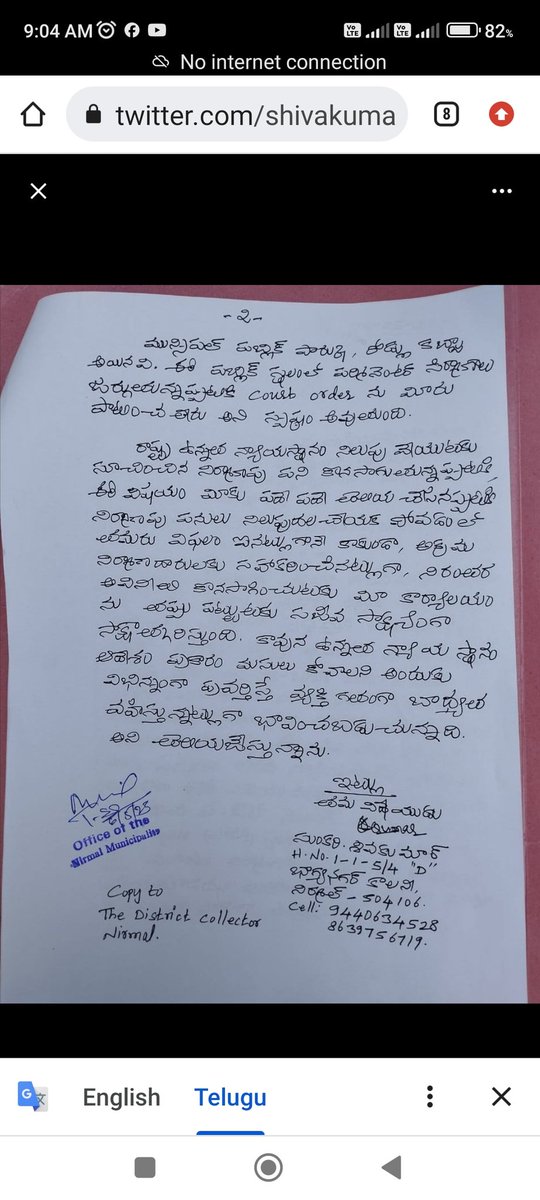 9:04 AM
82%
No internet connection
twitter.com/shivakuma
8
-2-
మున్సిపల్ పబ్లిక్ పార్కు, రోడ్లు కబ్జా
అయినవి. ఈ పబ్లిక్ స్థలంలో పర్మినెంట్ నిర్మాణాలు
జరుగుతున్నప్పటికి Court order ను మీరు
పాటించ లేదు అని స్పష్టం అవుతుంది.
రాష్ట్ర ఉన్నత న్యాయస్థానం నిలుపు చేయుటకు
సూచించిన నిర్మాణపు పని కొనసాగుతున్నప్పటికి,
ఈ విషయం మీకు పదే పదే తెలియ చేసినప్పటికి
నిర్మాణపు పనులు నిలుపుదల చేయక పోవడంలో
తమరు విఫలం ఐనట్లుగానే కాకుండా, అక్రమ
నిర్మాణదారులకు సహకరించినట్లుగా, నిరంతర
అవినీతి కొనసాగించుటకు మీ కార్యాలయం
ను తప్పు పట్టుటకు సజీవ సాక్ష్యంగా
కావున ఉన్నత న్యాయ స్థానం
ఆదేశం ప్రకారం మసులు కోవాలని అందుకు
విభిన్నంగా ప్రవర్తిస్తే వ్యక్తి గతంగా బాధ్యత
వహిస్తున్నట్లుగా భావించబడుచున్నది.
అని తెలియజేస్తున్నాను.
ఇట్లు
తమ విధేయుడు
శివకుమార్
H.No. 1-1-5/4 "D"
భాగ్యనగర్ కాలనీ,
నిర్మల్ - 504106.
Cell: 9440634528
8639756719.
Office of the
Nirmal Municipality
Copy to
The District collector
Nirmal.
English
Telugu